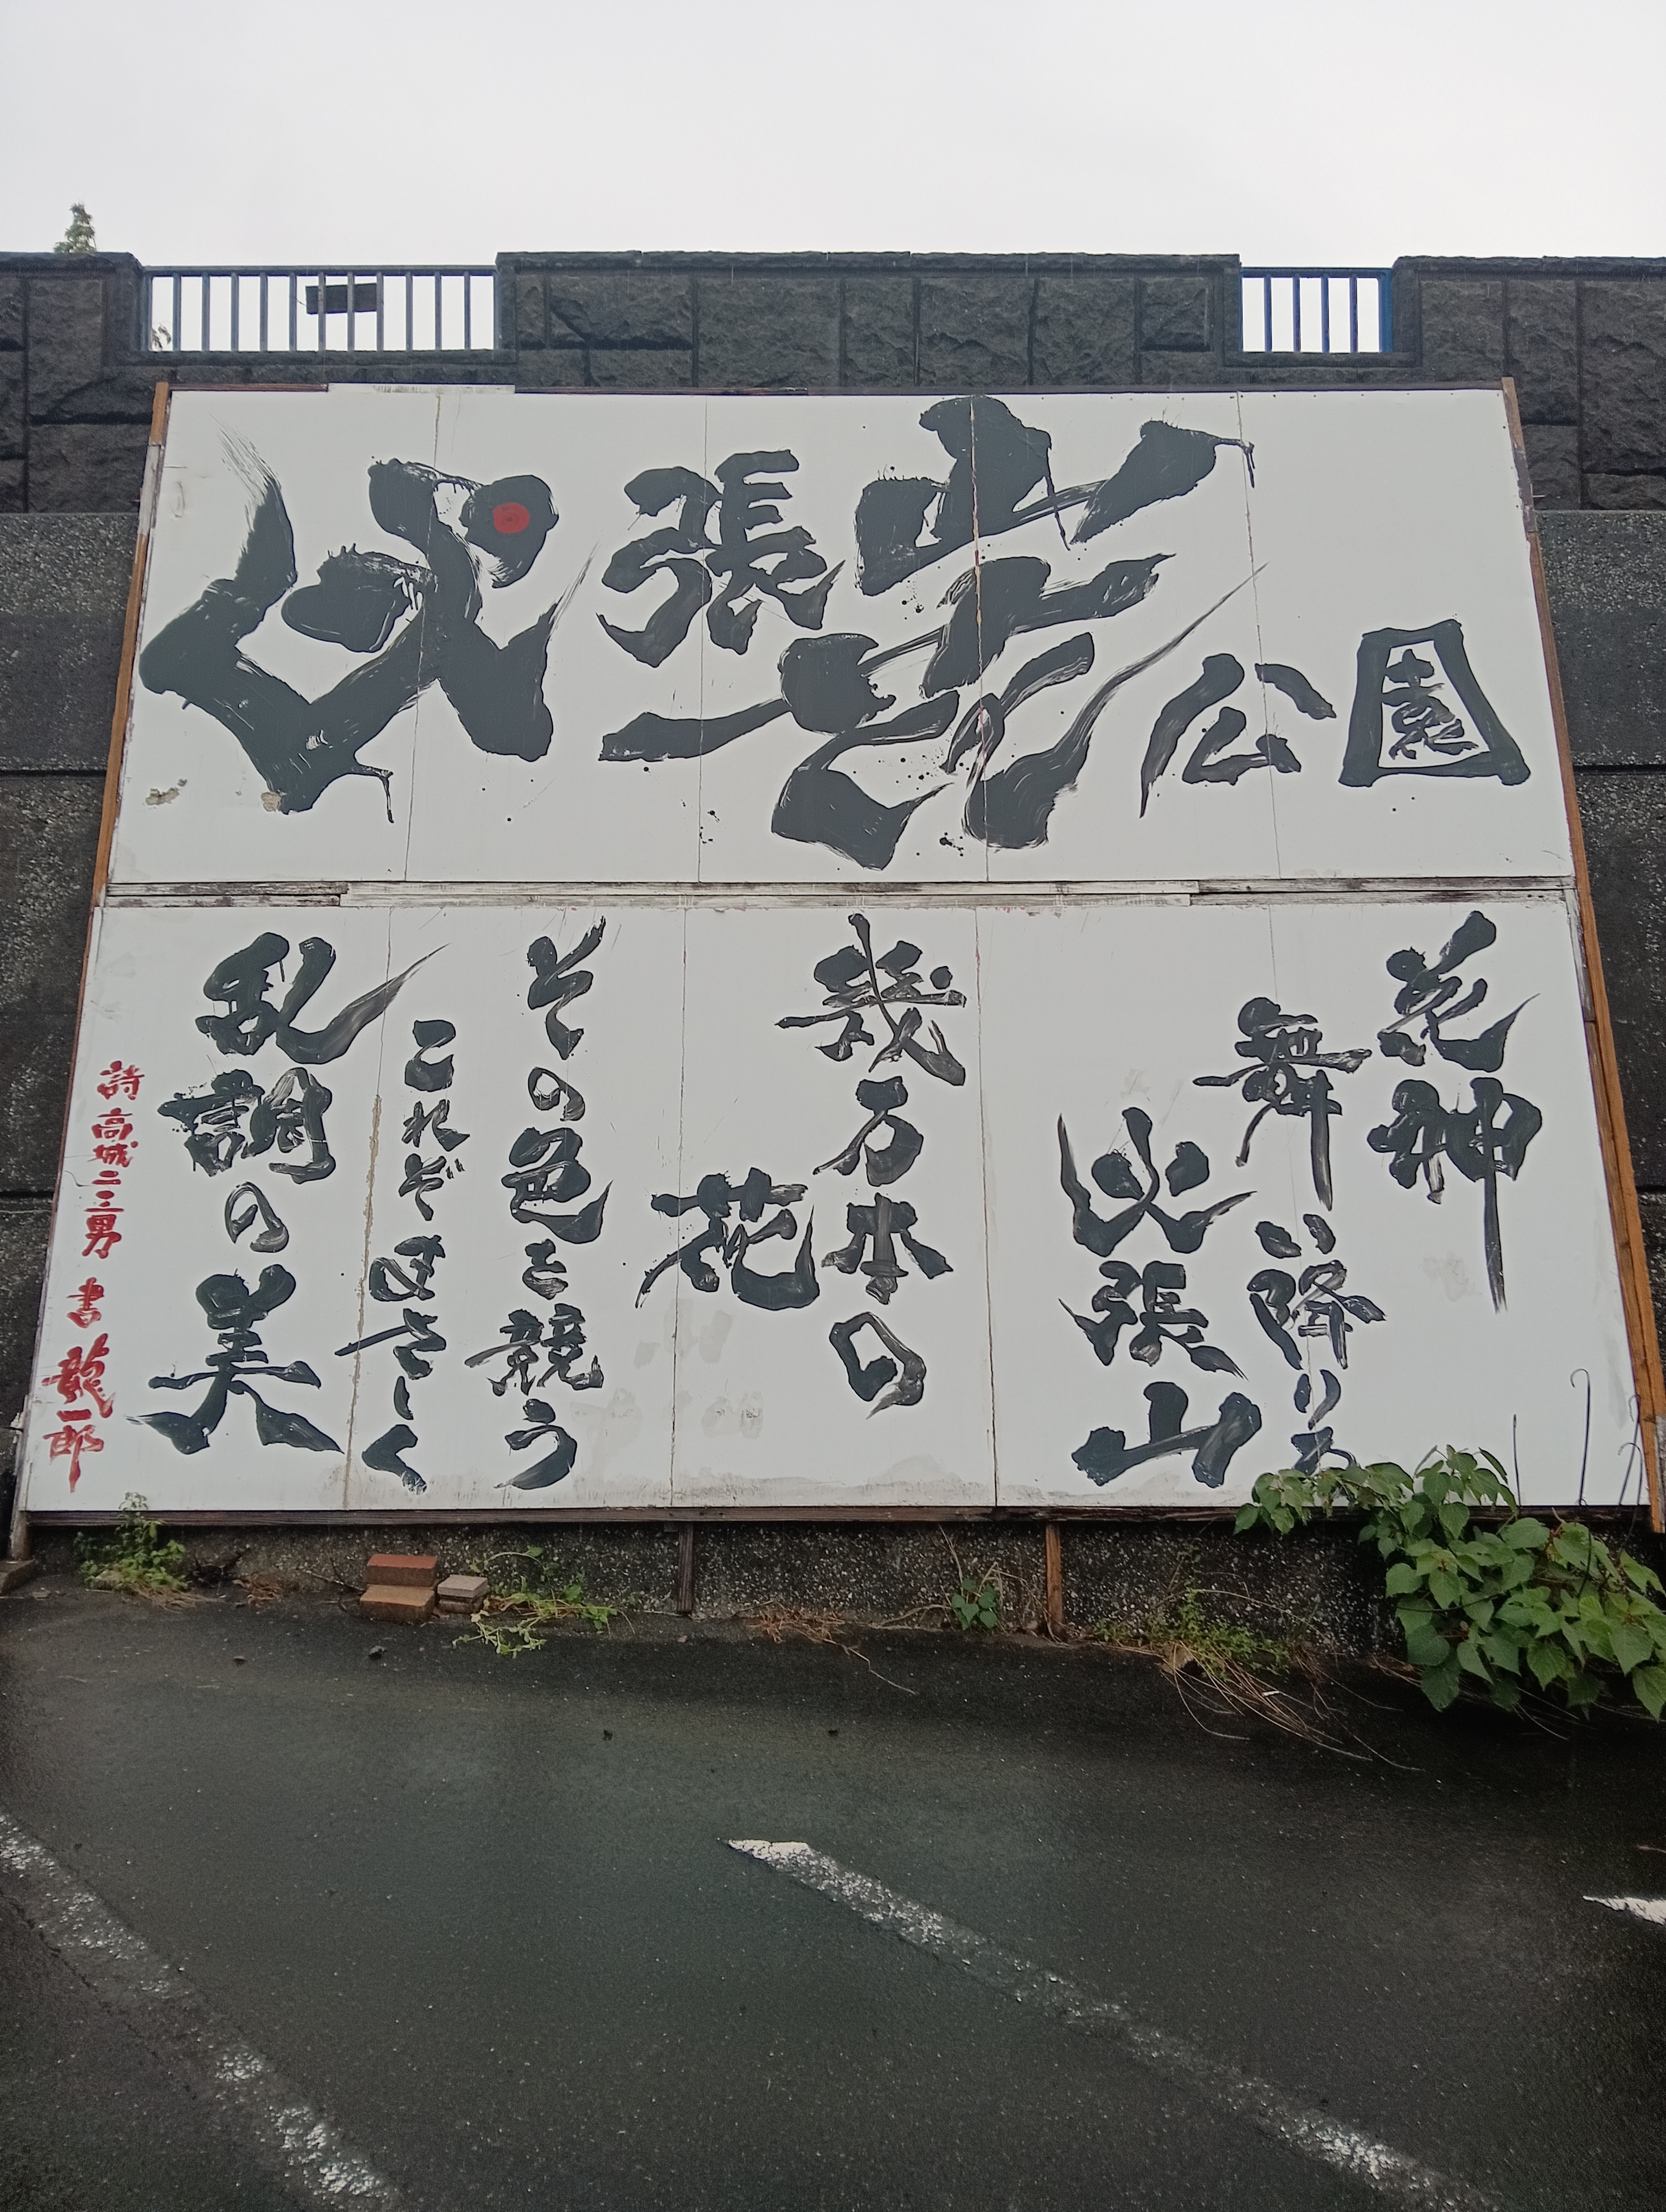 火張山花公園
花神
舞い降りる
火張山
幾万本の
花
その色を競う
これぞまさしく
乱調の美
詩 高城二三男 書 龍一郎